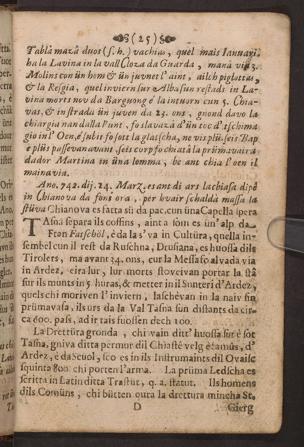 (25)
Tablà mazà duot (s. h.) vachias, quel mais Ianuari.
ha la Lavina in la vall Cloza da Guarda, mana via 3.
Molins con ün hom & ün juvnet l'aint, ailch piglattas,
& la Resgia, quel inviern sur Alba sun restads in La-
vina morts nov da Barguong é la intuorn cun 5. Chia-
vas. & in strada ün juven da 23. ons, gnond davo la
chiargia nandalla Punt, fo slavazà d'ün toc d'tschima
gio in l'Oen, é subit fo sot la glatscha, ne vis plü. seis Bap
é plüs passevan avant, seis corp fo chiatà la prümavara
dador Martina in üna lomma, be ant chia l'oen il
mainavia.
Ano, 742. dij. 24. Marz, es ant di ars la chiasa dipò
in Chianova da fons ora, per bvair schaldà massa la
stüva Chianova es fatta sü da pac, cun üna Capella spera
TAsna separa ils cossins, aint a som es ün'alp da
Ftan Faschöl, é da las' va in Cultüra, quella in-
sembel cun il rest da Ruschna, Drusiana, es huossa dils
Tirolers, ma avant 34. ons, eir la Messa fo alvada via
in Ardez, eira lur, lur morts stoveivan portar la stà
sur ils munts in 5 huras, & metter in il Sunteri d'Ardez,
quels chi moriven l'inviern, laschèvan in la naiv fin
prümavara, ils urs da la Val Tasna sun distants da cir-
ca 600. pass, ad ir tais fuossen d'ech 100.
La Drettüra gronda, chi vain ditt' huossa sur é sot
Tasna, gniva ditta permur dil Chiastè velg è amüs, d'
Ardez, é da Scuol, sco es in ils Instrumaints dil Ovaisc
squintè 800. chi porten l'arma. La prüma Ledscha es
scritta in Latin ditta Trastüt, q. a. statut. Ils homens
dils Comüns, chi bütten oura la drettura mincha St.
D
Gierg